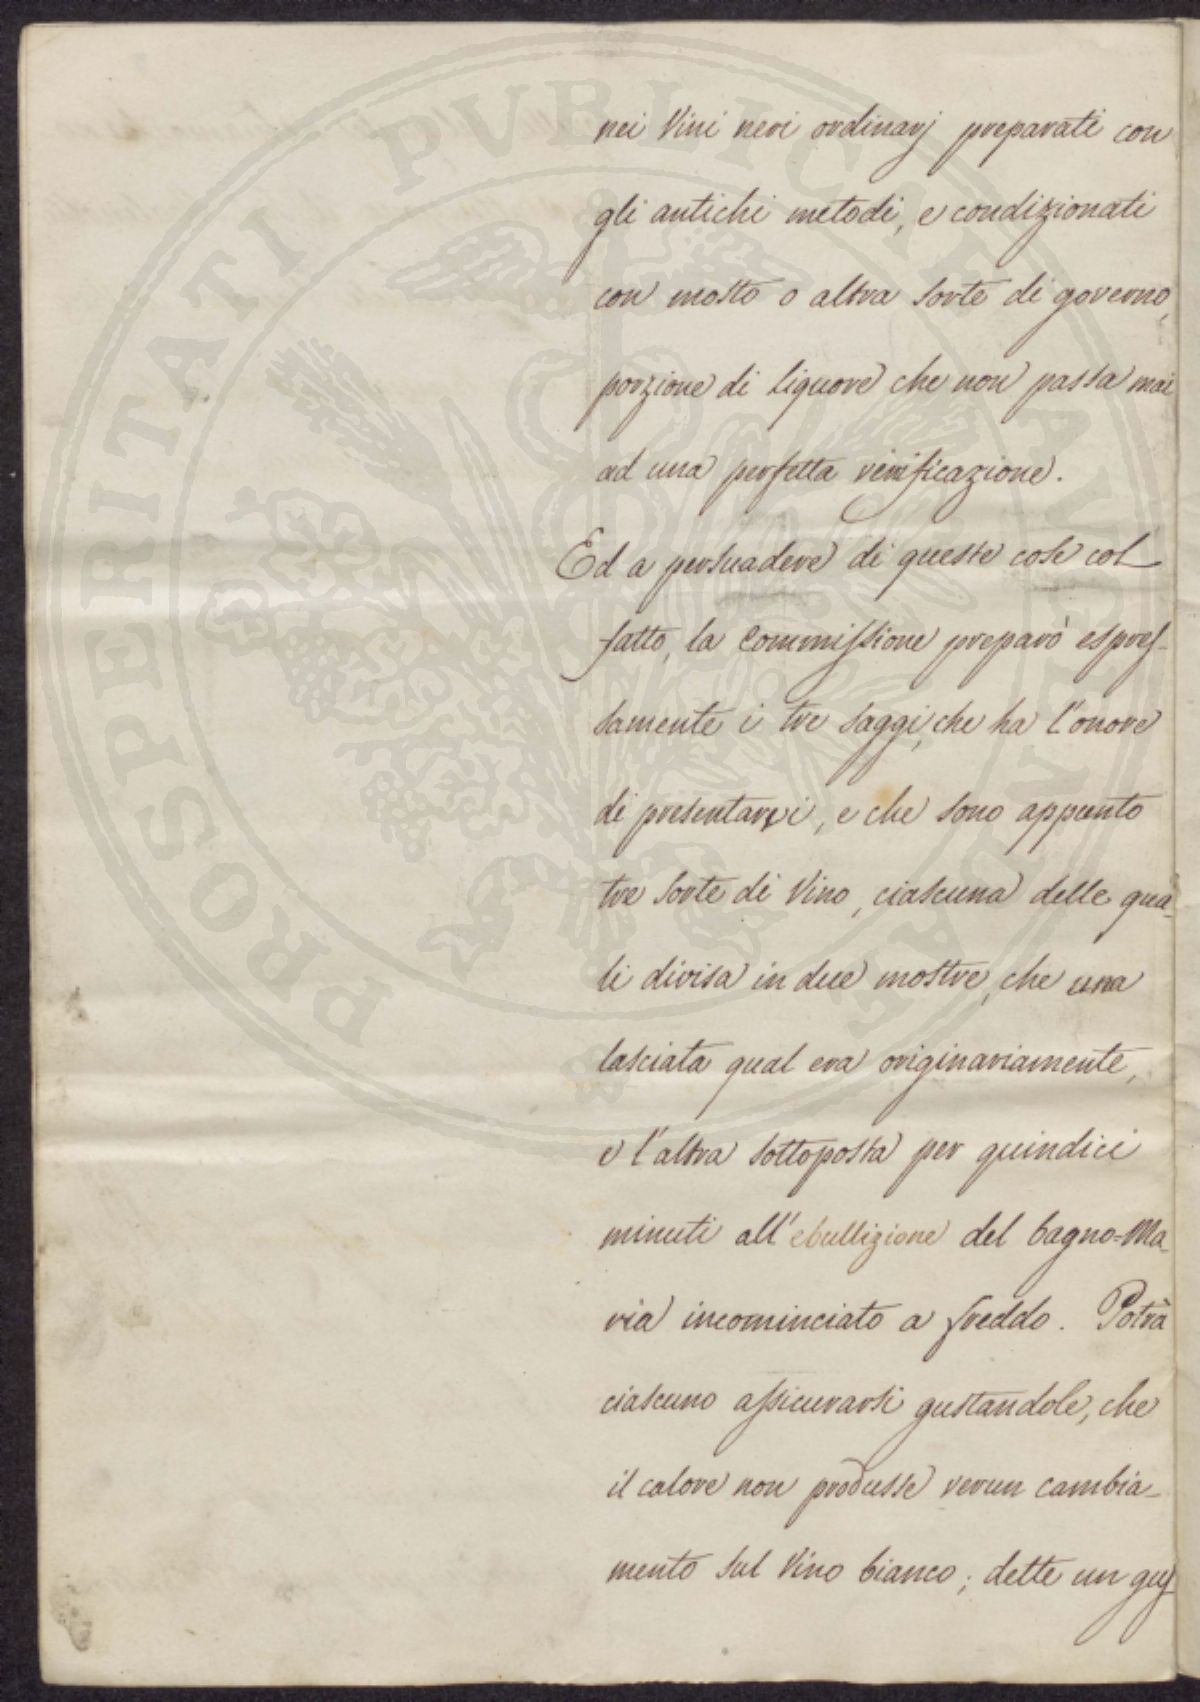 nei Vini neri ordinarj preparati con
gli antichi metodi, e condizionati
con mosto o altra sorte di governo,
porzione di liquore che non passa mai
ad una perfetta vinificazione.
Ed a persuadere di queste cose col
fatto, la Commissione preparò espres-
samente i tre saggi, che ha l'onore
di presentarvi, e che sono appunto
tre sorte di Vino, ciascuna delle qua-
li divisa in due mostre, che una
lasciata qual era originariamente,
e l'altra sottoposta per quindici
minuti all'ebullizione del bagno=Ma-
ria incominciato a freddo. Potrà
ciascuno assicurarsi gustandole, che
il calore non produsse verun cambia-
mento sul Vino bianco; dette un gus
PROSPERITATI PVBLICAE AVGENDAE